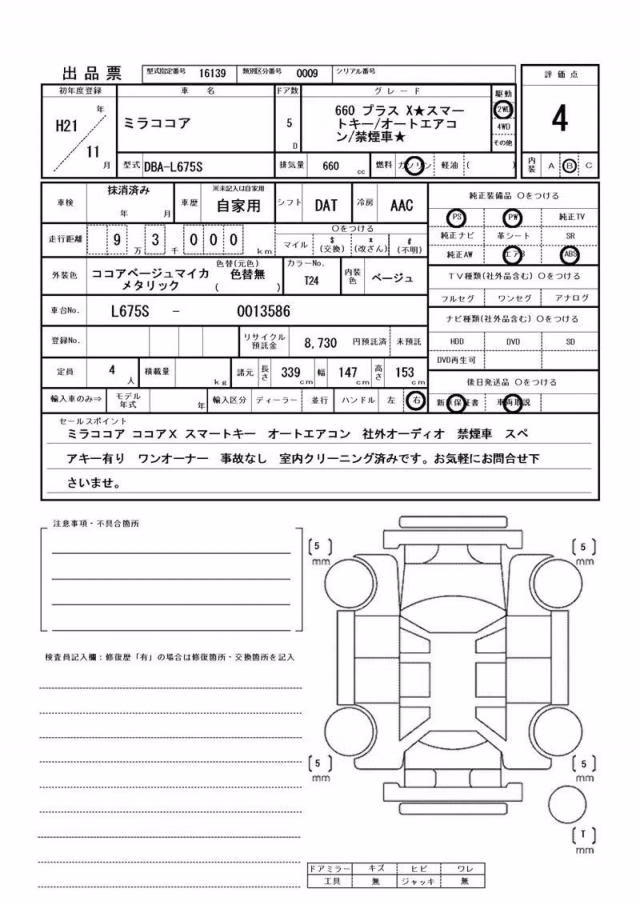 出品票 型式指定番号 16139 類別区分番号 0009 シリアル番号
評価点
4
初年度登録 車名 ドア数 グレード 駆動
H21 年
11 月
ミラココア
5 D
660 プラス X★スマー
トキー/オートエアコ
ン/禁煙車★
2WD
4WD
その他
型式 DBA-L675S 排気量 660 cc 燃料 ガソリン 軽油 ( )
内装 A B C
車検 抹消済み 年 月
車歴 ※未記入は自家用 自家用
シフト DAT 冷房 AAC
走行距離 9 万 3 千 0 0 0 km
○をつける
マイル $(交換) *(改ざん) #(不明)
外装色 ココアベージュマイカメタリック
色替(元色) 色替無 ( )
カラーNo. T24 内装色 ベージュ
車台No. L675S - 0013586
登録No. リサイクル預託金 8,730 円預託済 未預託
定員 4 人 積載量 kg 諸元 長さ 339 cm 幅 147 cm 高さ 153 cm
輸入車のみ⇒ モデル年式 年 輸入区分 ディーラー 並行 ハンドル 左 右
純正装備品 ○をつける
PS PW 純正TV
純正ナビ 革シート SR
純正AW エアB ABS
TV種類(社外品含む) ○をつける
フルセグ ワンセグ アナログ
ナビ種類(社外品含む) ○をつける
HDD DVD SD
DVD再生可
後日発送品 ○をつける
新車保証書 車両取説
セールスポイント
ミラココア ココアX スマートキー オートエアコン 社外オーディオ 禁煙車 スペ
アキー有り ワンオーナー 事故なし 室内クリーニング済みです。お気軽にお問合せ下
さいませ。
注意事項・不具合箇所
検査員記入欄：修復歴「有」の場合は修復箇所・交換箇所を記入
[5] mm
[5] mm
[5] mm
[5] mm
[T] mm
ドアミラー キズ ヒビ ワレ
工具 無 ジャッキ 無